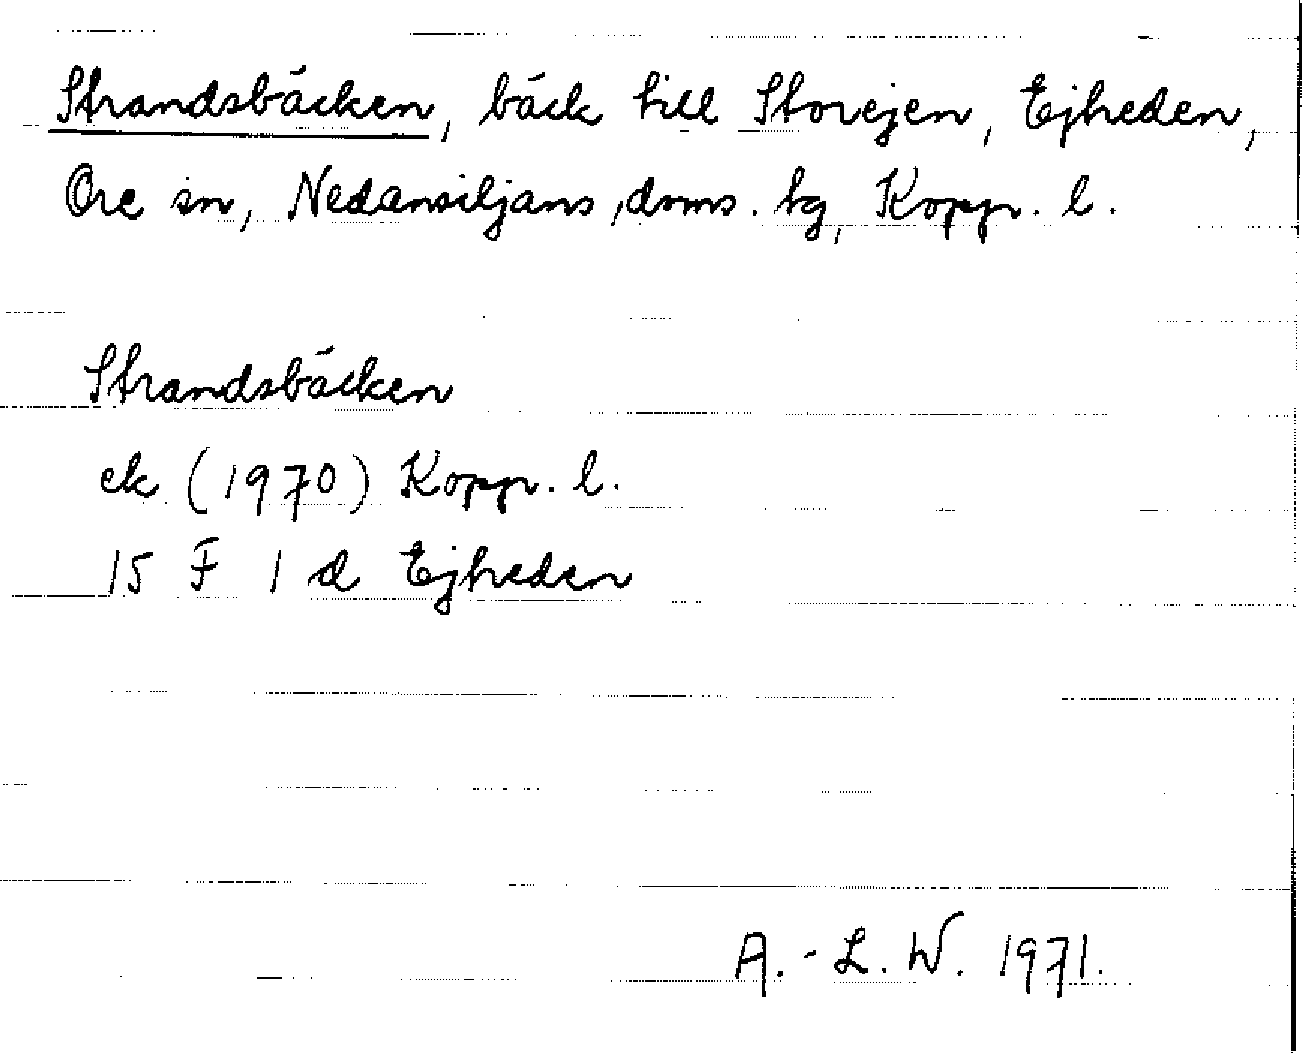 Strandsbäcken, bäck till Storejen, Ejheden,
Ore sn, Nedansiljans, doms. hg, Kopp. l.
Strandsbäcken
ek (1970) Kopp. l.
15 F 1 d Ejheden
A.-L. W. 1971.